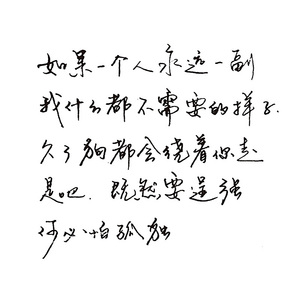 如果一个人永远一副
我什么都不需要的样子.
久了狗都会绕着你走
是吧.既然要逞强
何必怕孤独